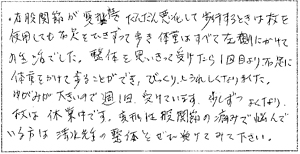 ・右股関節が変形し だんだん悪化して歩行するときは杖を
使用しても右足をひきずって歩き体重はすべて左側にかけて
の生活でした。整体を思いきって受けたら1回目より右足に
体重をかけて歩ることができ、びっくり、うれしくなりました。
ゆがみが大きいので週1回、受けています。少しずつよくなり、
杖は休業中です。変形性股関節の痛みで悩んで
いる方は 先生の整体をぜひ受けてみて下さい。